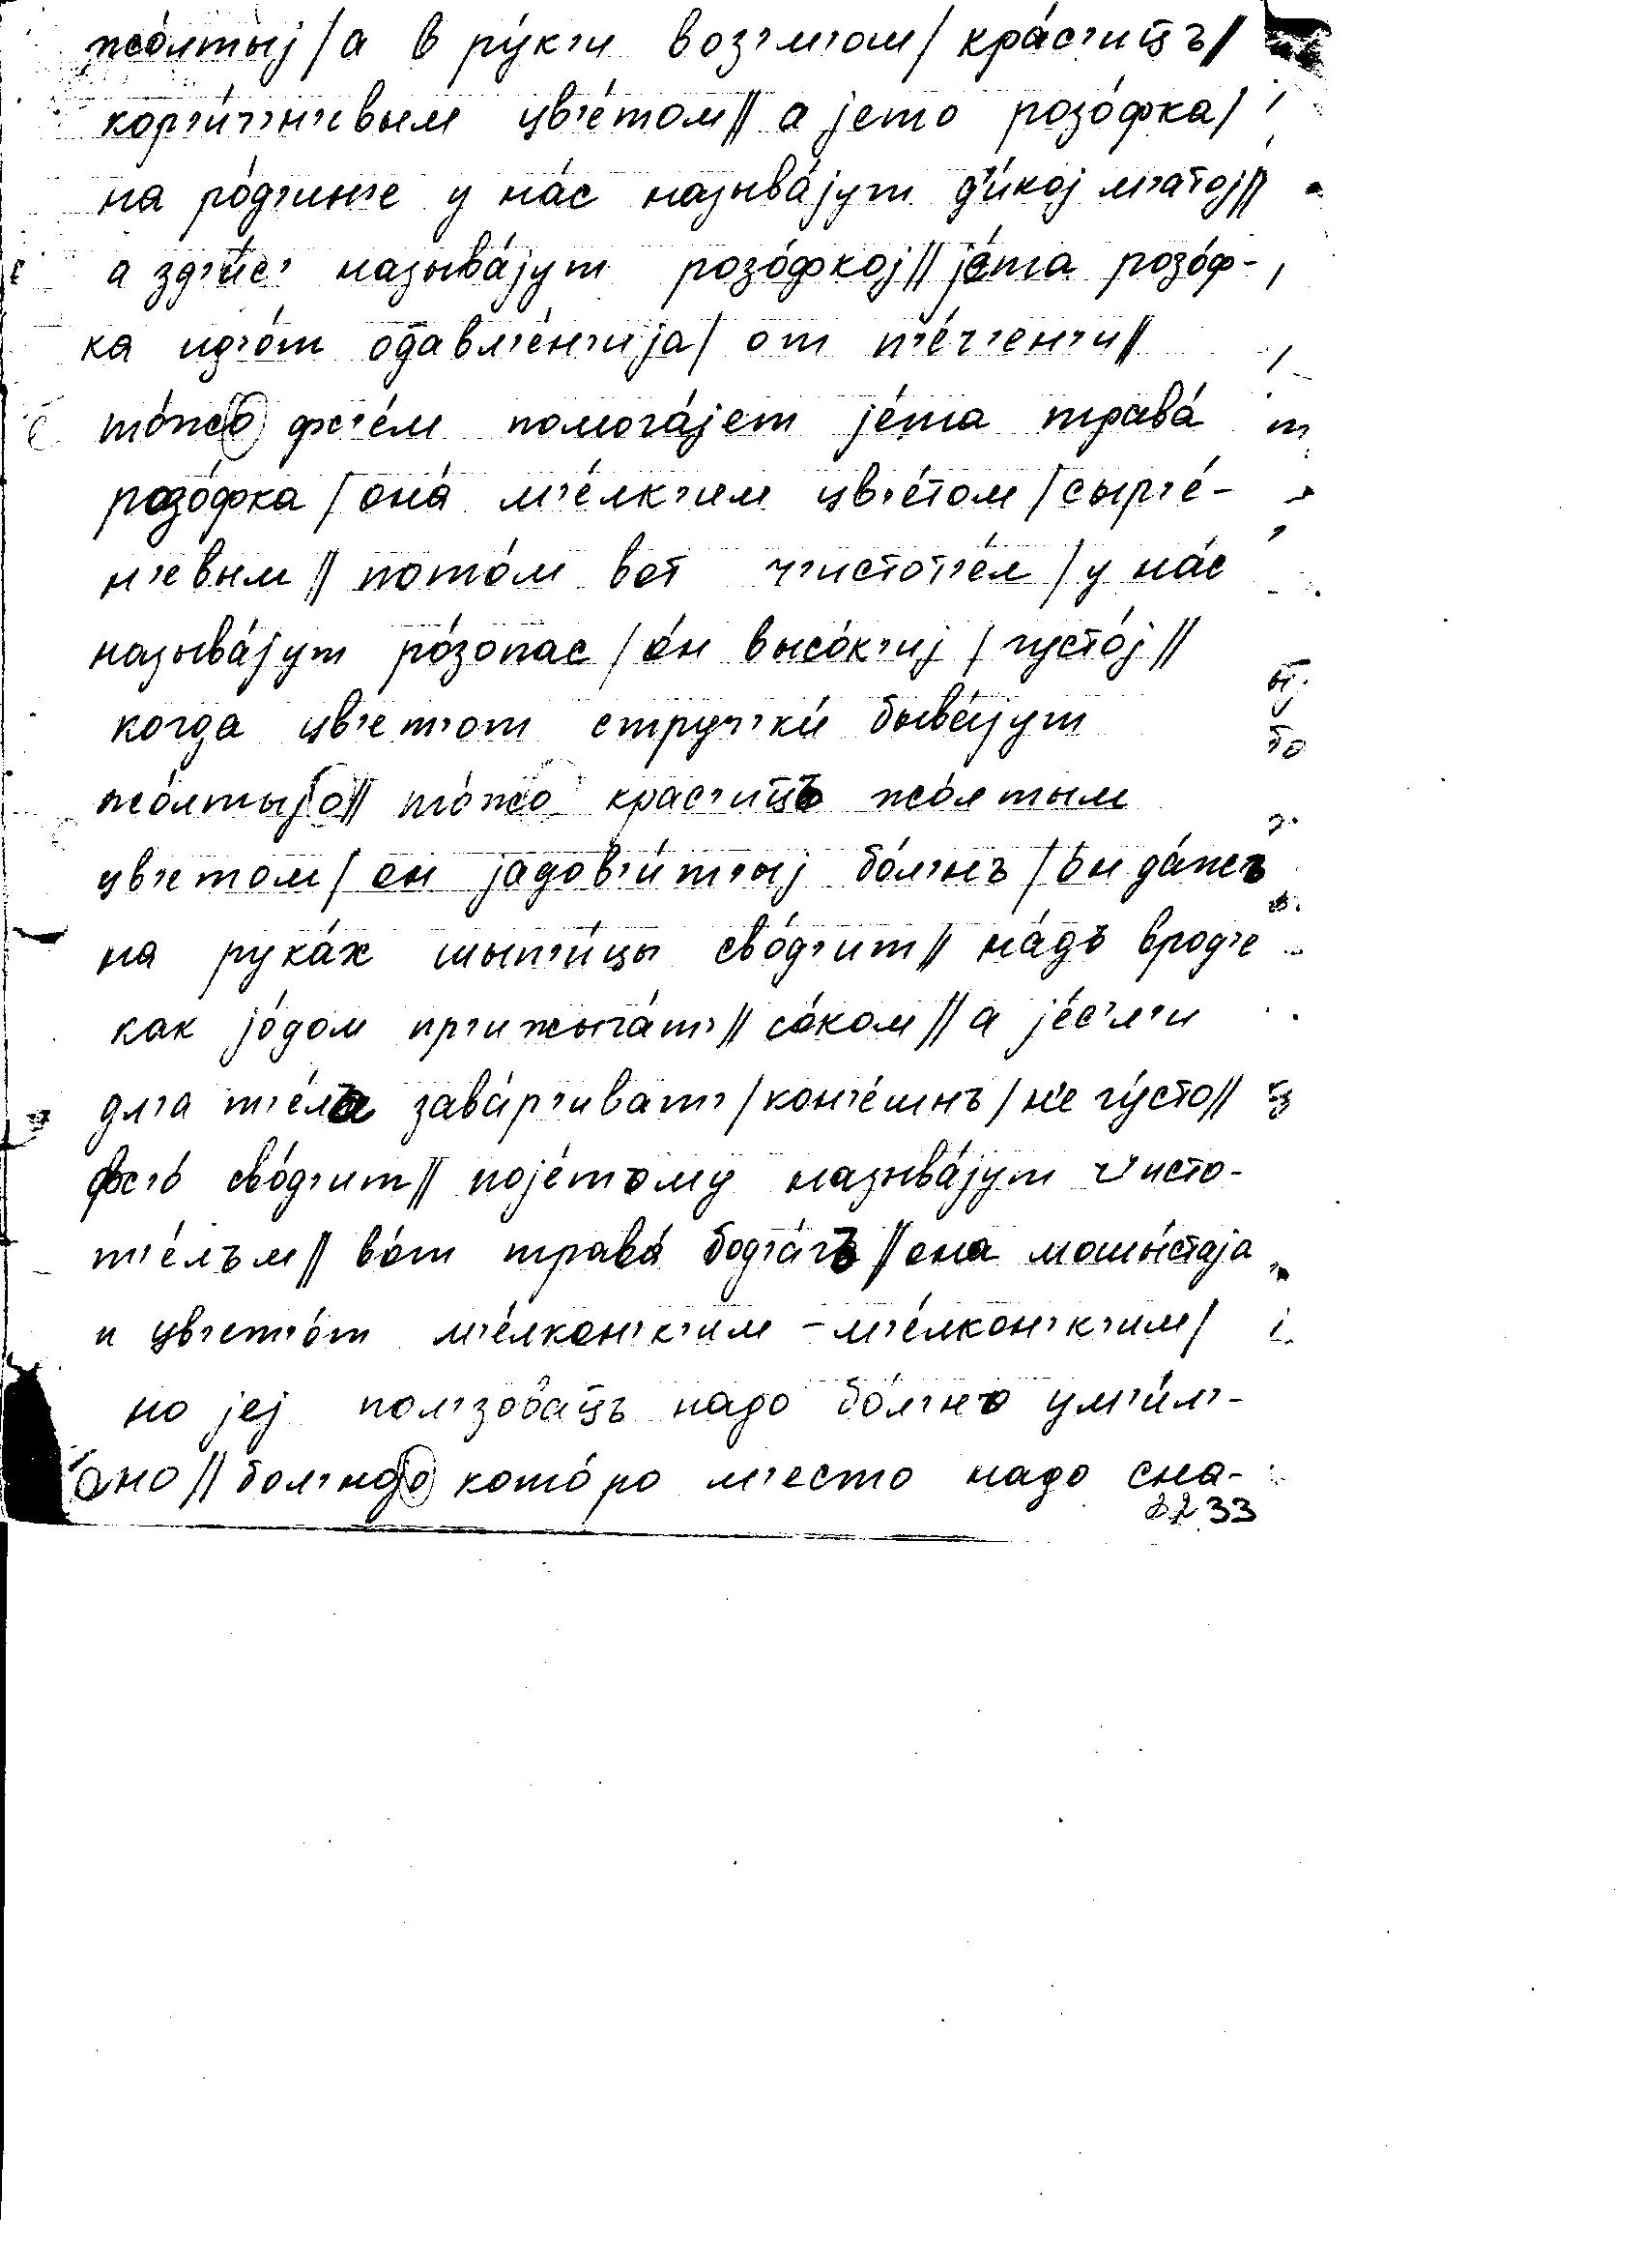 жо́лтыj / а в ру́к'и воз'м'ом / кра́с'иц̄ъ //
кор'и́ч'н'евым цв'е́том // а jето розо́фка /
на ро́д'ин'е у на́с называ́jут д'и́коj м'атоj //
а зд'и́с' называ́jут розо́фкоj // jе́та розо́ф-
ка ид'о́т од̄авл'е́н'иjа / от п'е́ч'ен'и //
то́жо фс'е́м помога́jет jе́та трава́
розо́фка / она́ м'е́лк'им цв'е́том / сыр'е́-
н'евым // пото́м вот ч'истот'е́л / у на́с
называ́jут ро́зопас / о́н высо́к'иj / густо́j //
когда цв'ет'от струч'ки́ быва́jут
жо́лтыjо // то́жо крас'иц̄ъ жо́лтым
цв'етом / он jадов'и́тыj бо́л'нъ / он да́жъ
на рука́х шып'и́цы сво́д'ит // на́дъ врод'е
как jо́дом пр'ижыга́т' // со́ком // а jе́с'л'и
дл'а т'е́ла зава́р'иват' / кон'е́шнъ / н'е гу́сто //
фс'о́ сво́д'ит // поjе́тому называ́jут ч'исто-
т'е́лъм // во́т трава́ бод'а́гъ // она мошы́стаjа
и цв'ет'о́т м'е́лкон'к'им - м'е́лкон'к'им /
но jеj пол'зо́вац̄ъ надо бо́л'но ум'и́л'-
оно // бол'ноjо кото́ро м'есто надо сна-
2233